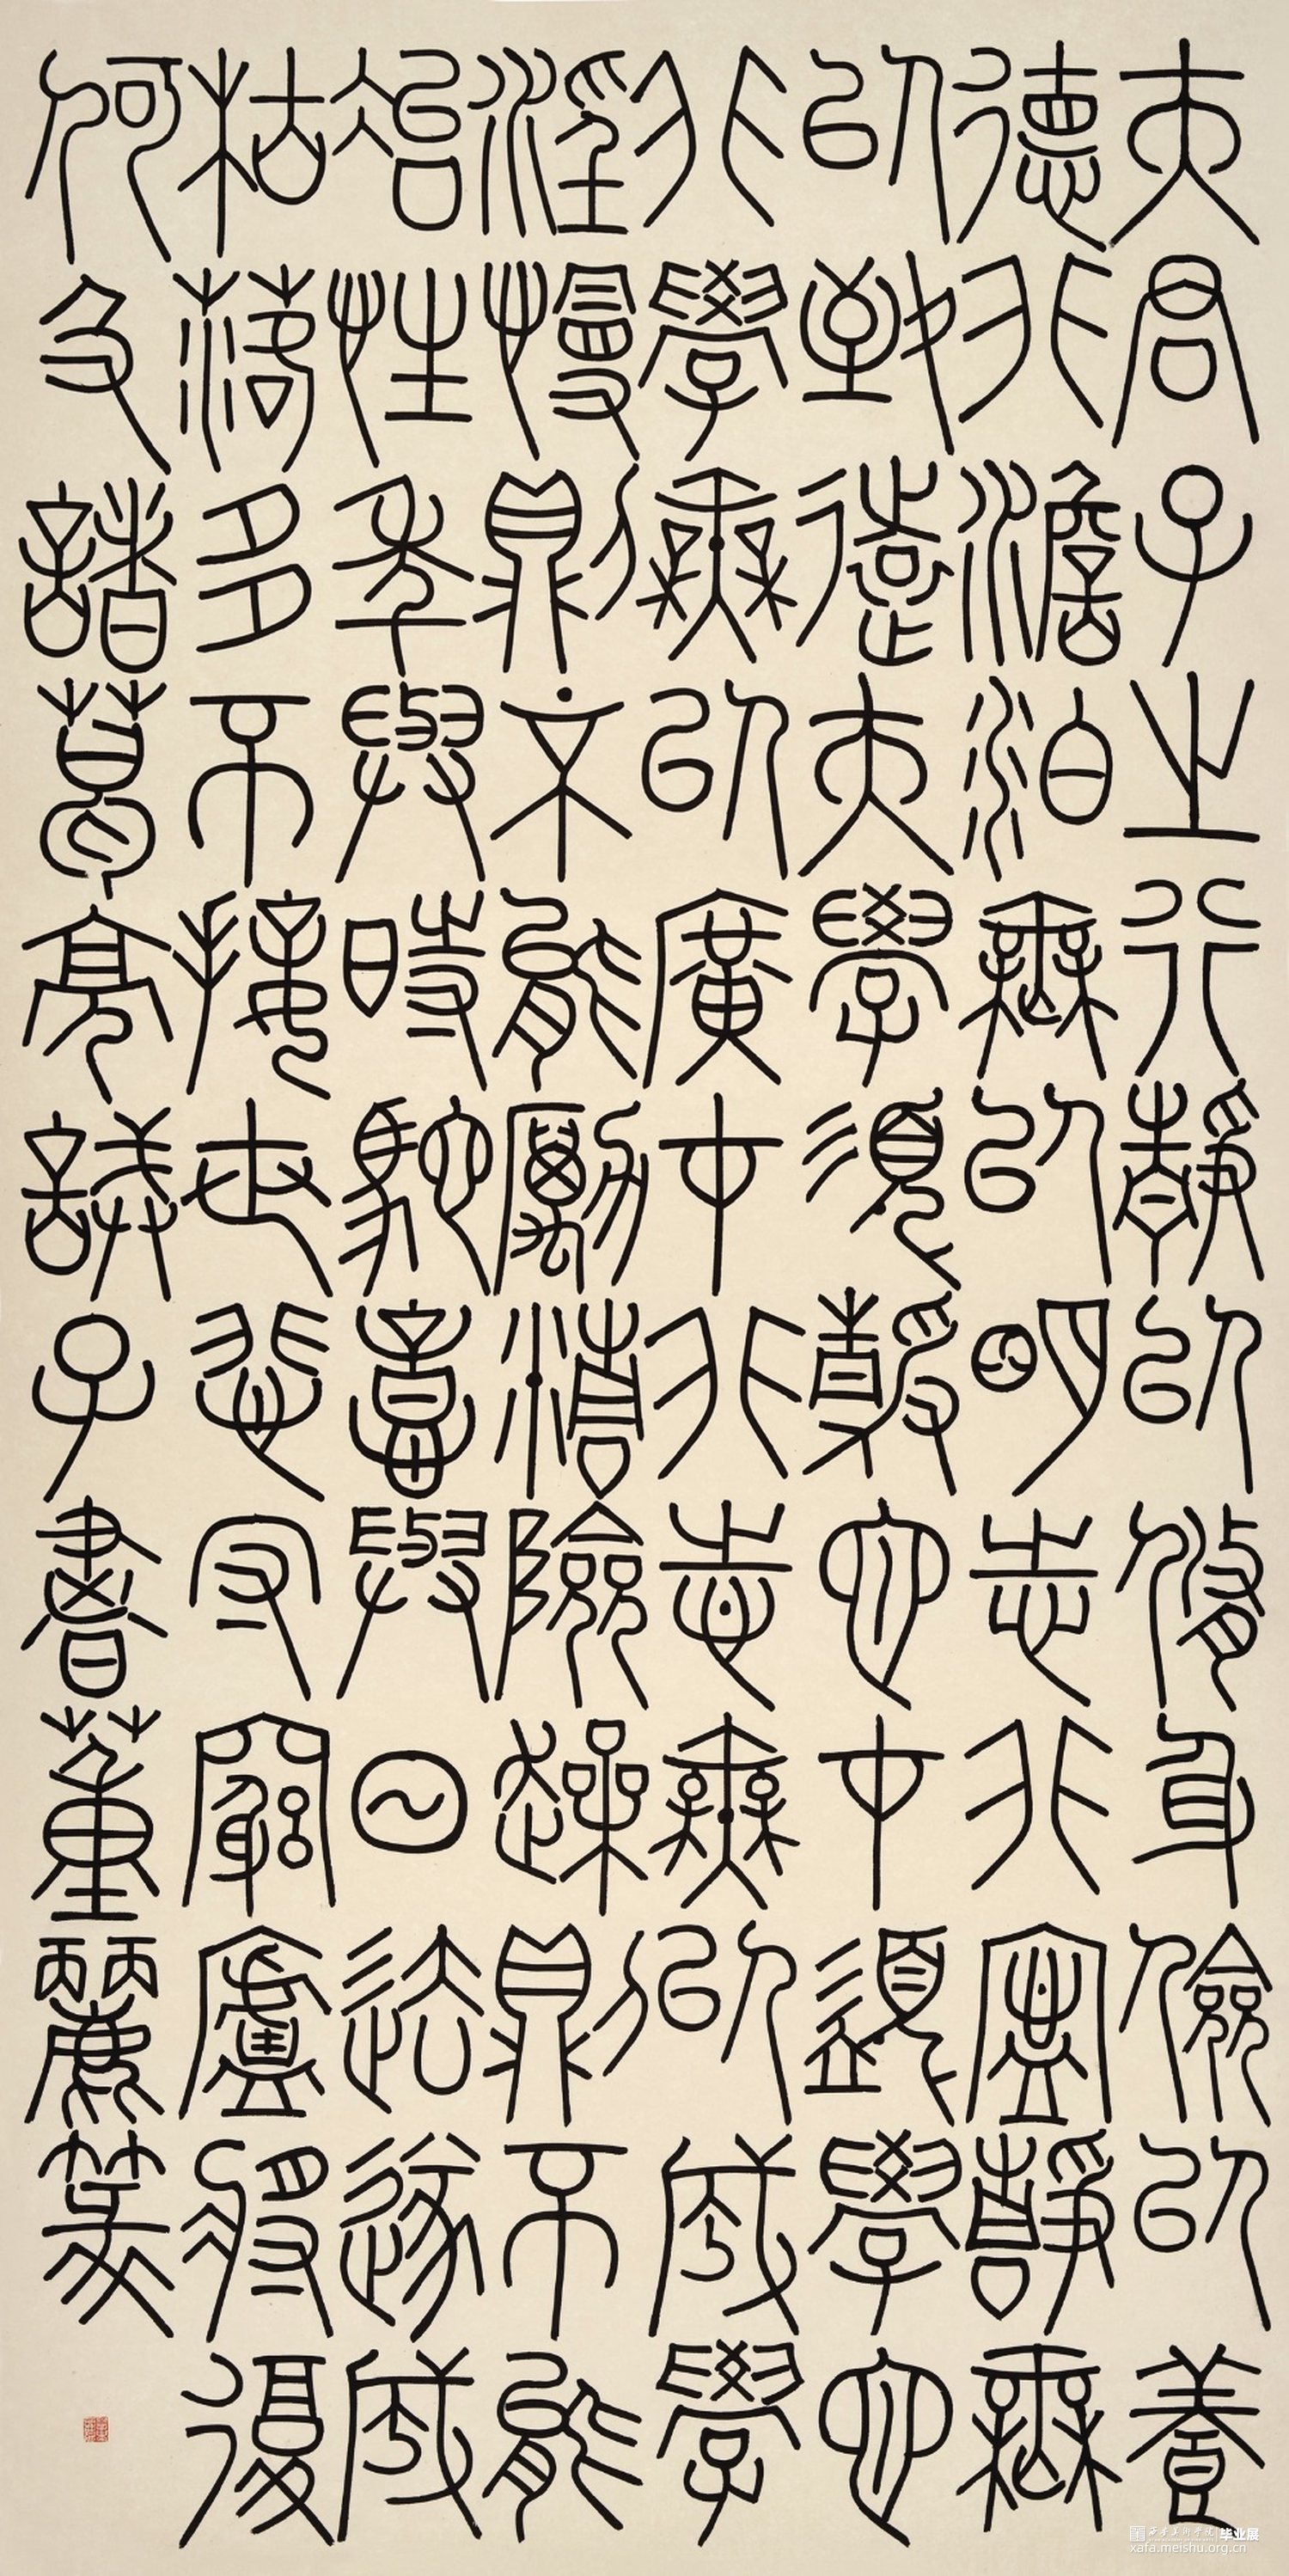 夫君子之行靜以脩身儉以養
德非澹泊無以明志非寧靜無
以致遠夫學須靜也才須學也
非學無以廣才非志無以成學
淫慢則不能勵精險躁則不能
冶性年與時馳意與日去遂成
枯落多不接世悲守窮廬將復
何及諸葛亮誡子書董麗篆
西安美術學院 毕业展
xafa.meishu.org.cn